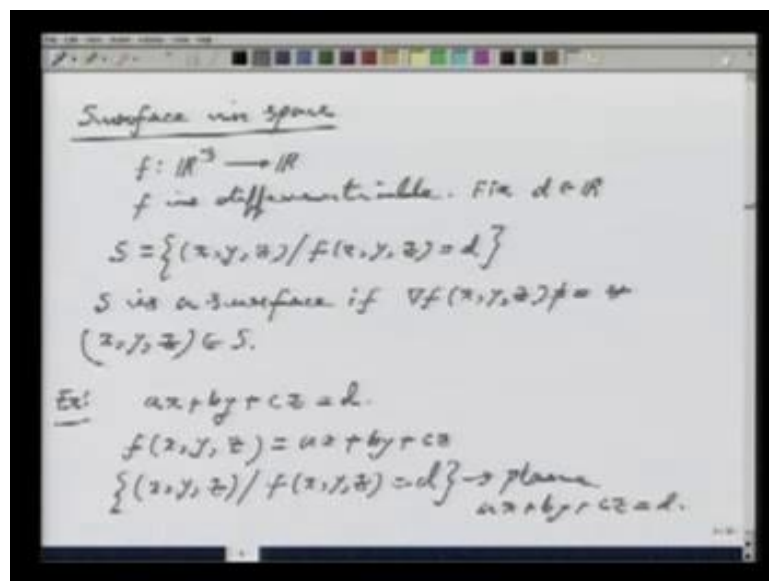 Surface in space
f: ℝ³ → ℝ
f is differentiable. Fix d ∈ ℝ
S = {(x, y, z) / f(x, y, z) = d}
S is a surface if ∇f(x, y, z) ≠ 0 ∀
(x, y, z) ∈ S.
Ex: ax + by + cz = d.
f(x, y, z) = ax + by + cz
{(x, y, z) / f(x, y, z) = d} → plane
ax + by + cz = d.